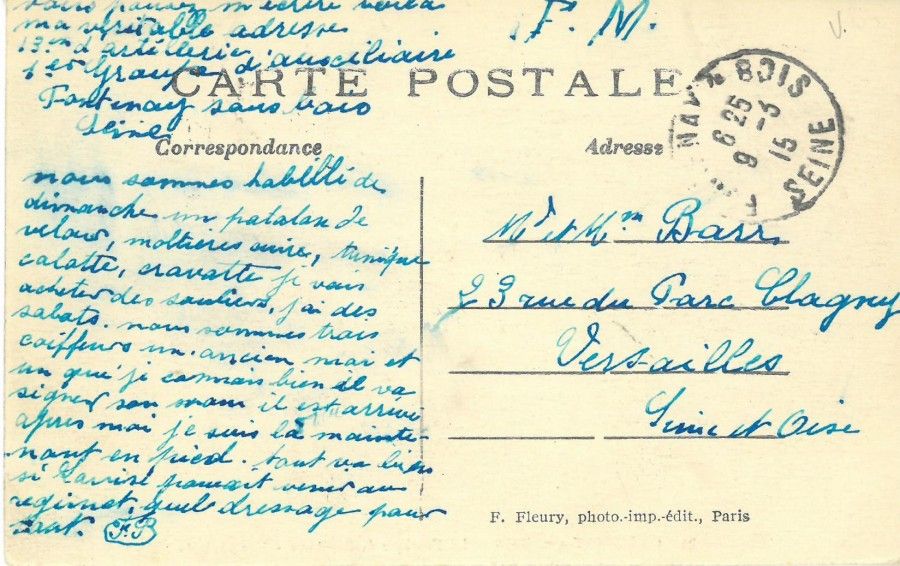 vous pouvez m'écrire voila
ma véritable adresse
13em d'artillerie
1er Groupe d'auxciliaire
Fontenay sous bois
Seine
F. M.
CARTE POSTALE
Correspondance
Adresse
BOIS
SEINE
6 25
9 -3
15
nous sommes habillé de
dimanche un patalan de
velour, moltières cuire, tunique
calotte, cravatte je vais
acheter des souliers, j'ai des
sabots. nous sommes trois
coiffeurs un ancien moi et
un que je connais bien il va
signer son nom il est arrivé
après moi je suis là mainte-
nant en pied. tout va bien
si pouvait venir au
regiment, quel dressage pour
tout. F.B
Mr et Mme Barr
23 rue du Parc Clagny
Versailles
Seine et Oise
F. Fleury, photo.-imp.-édit., Paris